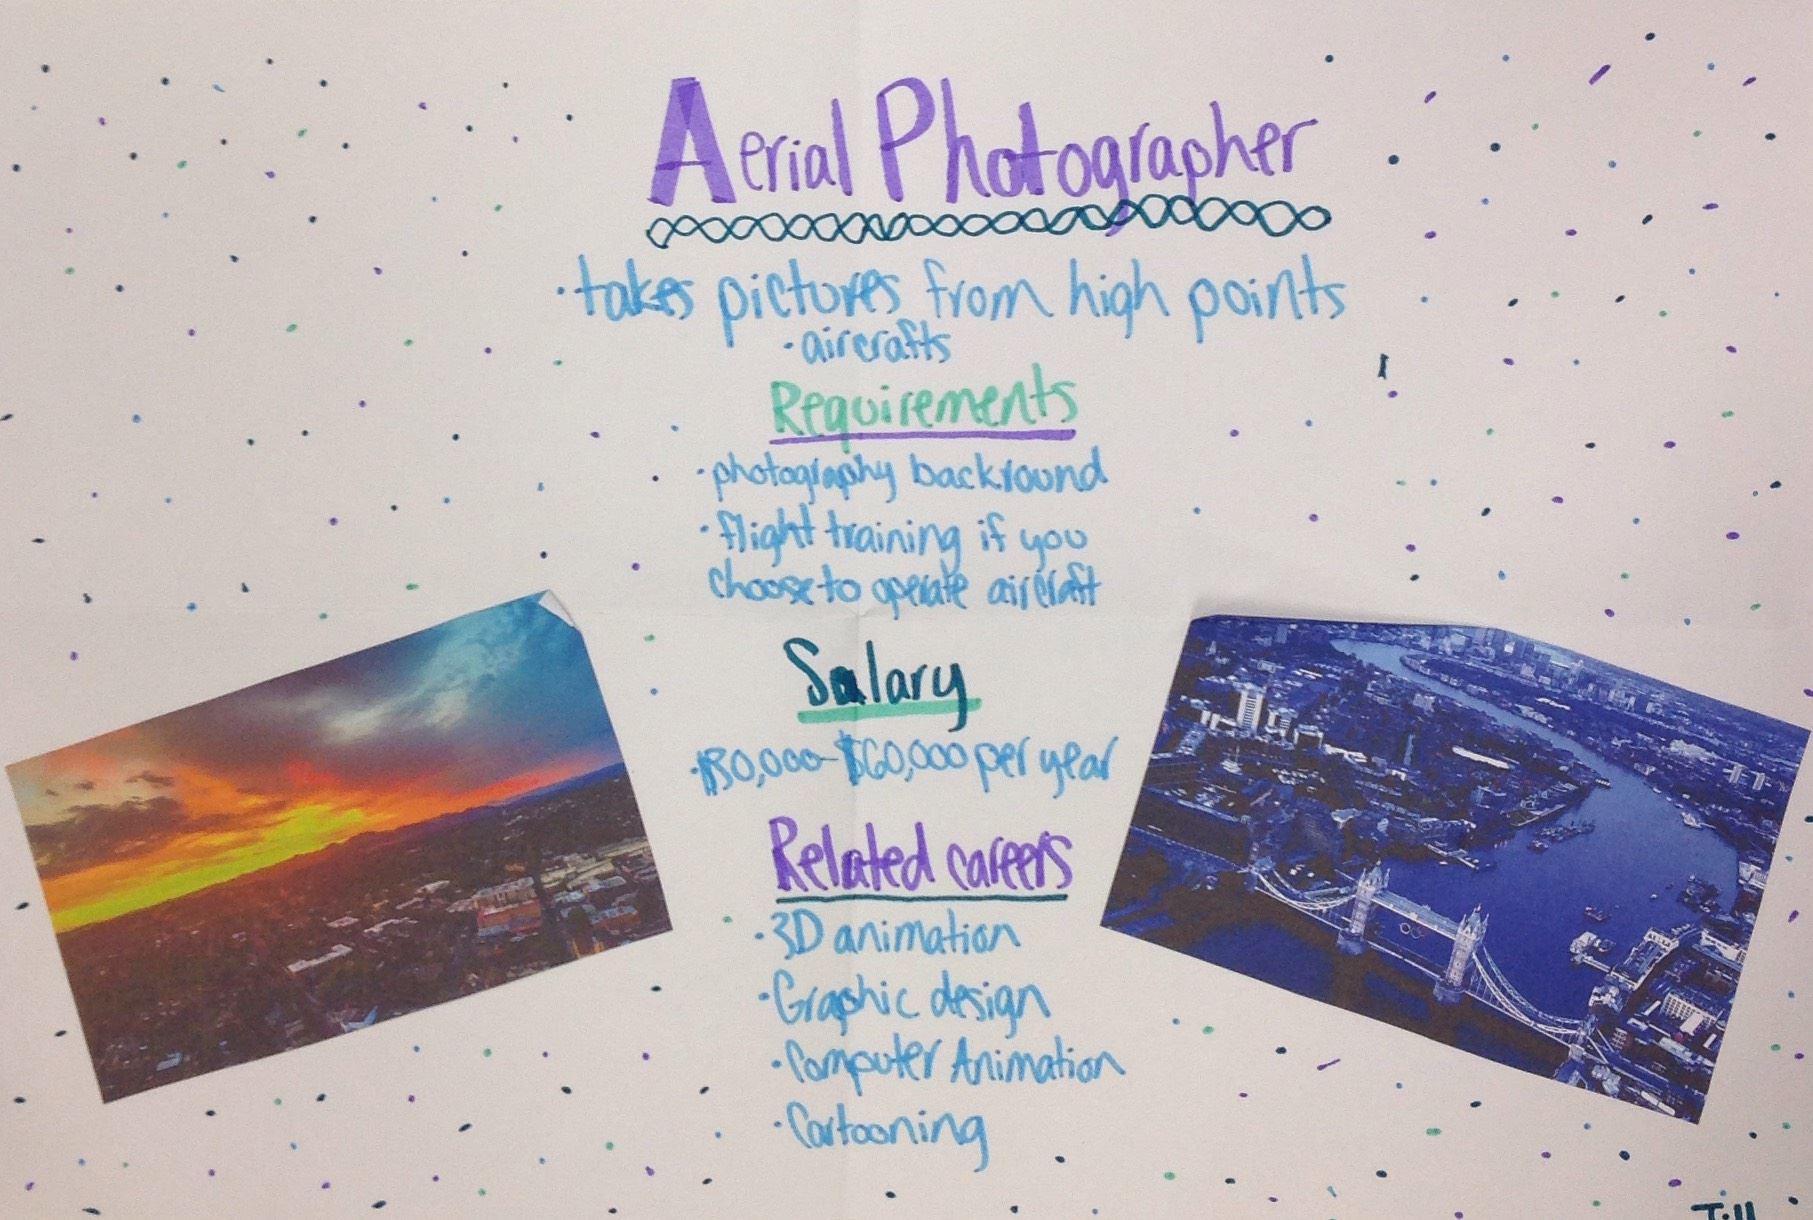 Aerial Photographer
· takes pictures from high points
· aircrafts
Requirements
· photography backround
· flight training if you
choose to operate aircraft
Salary
· $30,000-$60,000 per year
Related careers
· 3D animation
· Graphic design
· Computer Animation
· Cartooning